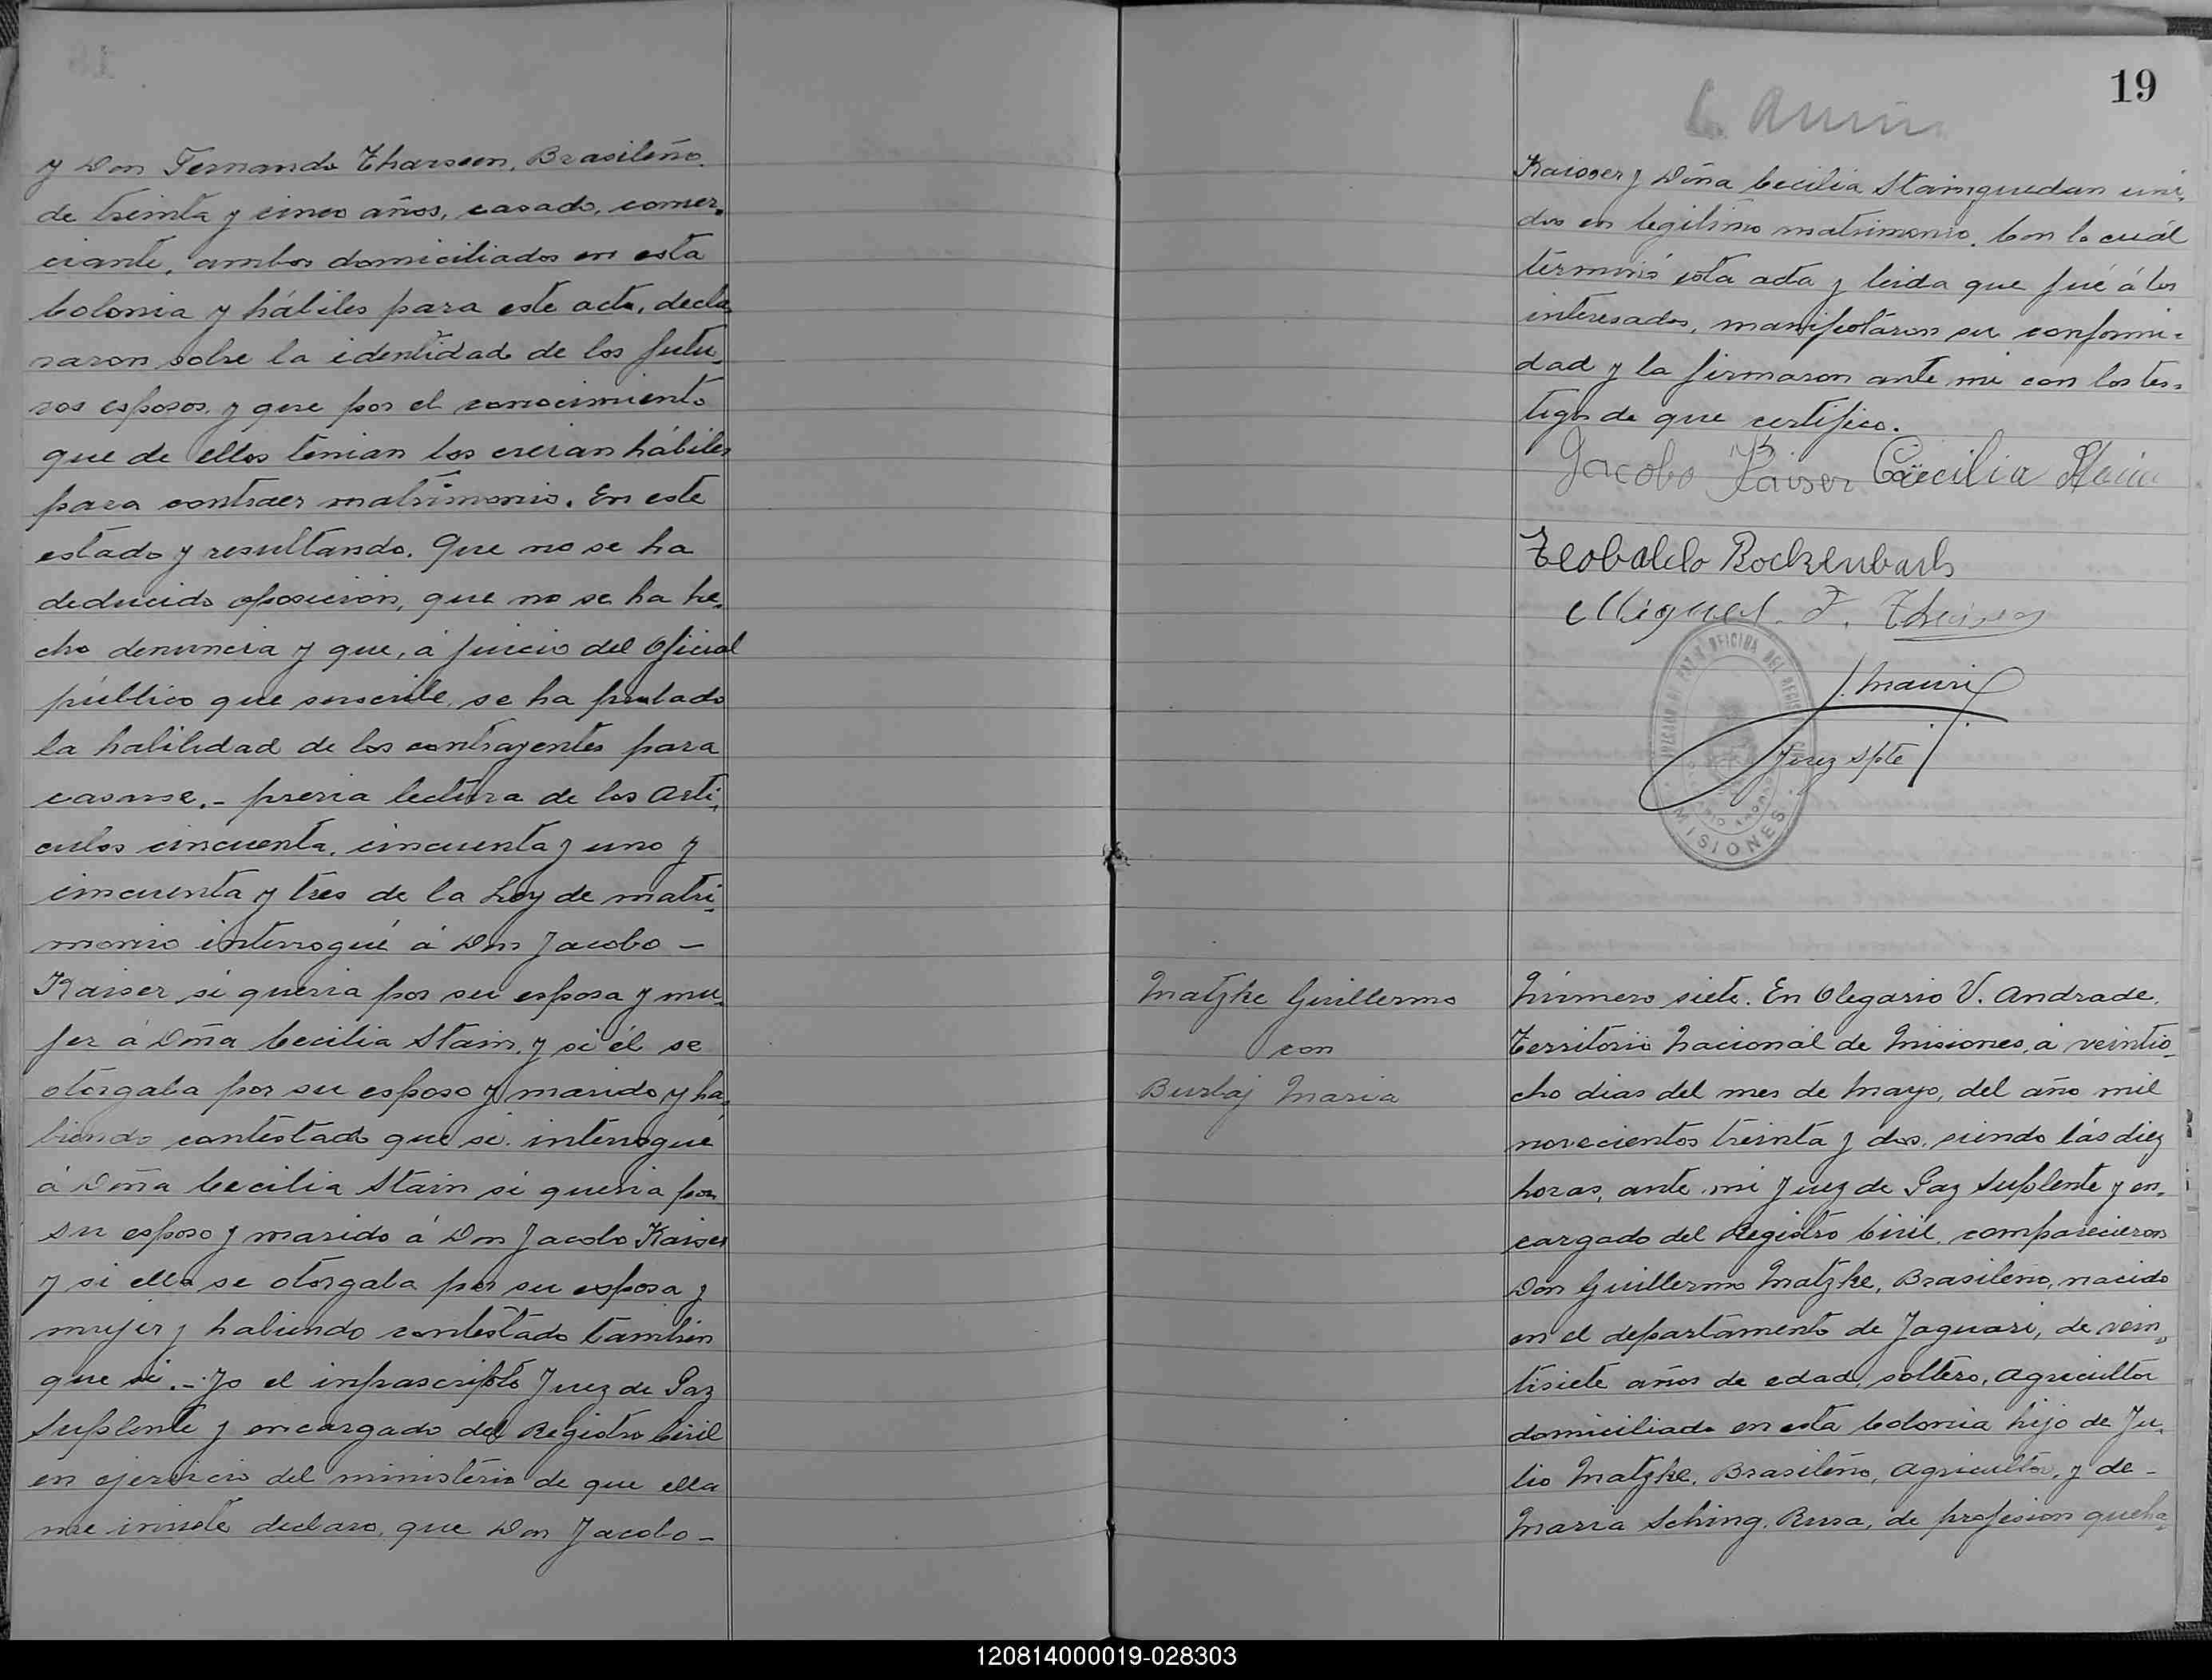 y Don Fernando Tharseen, Brasileño.
de treinta y cinco años, casado, comer-
ciante, ambos domiciliados en esta
Colonia y hábiles para este acto, decla-
raron sobre la identidad de los futu-
ros esposos, y que por el conocimiento
que de ellos tenian los creian hábiles
para contraer matrimonio. En este
estado y resultando. Que no se ha
deducido oposicion, que no se ha he-
cho denuncia y que, á juicio del Oficial
público que suscribe, se ha probado
la habilidad de los contrayentes para
casarse.- previa lectura de los Arti-
culos cincuenta, cincuenta y uno y
cincuenta y tres de la Ley de matri-
monio interrogué á Don Jacobo -
Kaiser si queria por su esposa y mu-
jer á Doña Cecilia Stain, y si él se
otorgaba por su esposo y marido y ha-
biendo contestado que si. interrogué
á Doña Cecilia Stain si queria por
su esposo y marido á Don Jacobo Kaiser
y si ella se otorgaba por su esposa y
mujer y habiendo contestado tambien
que si.- Yo el infrascripto Juez de Paz
Suplente y encargado del Registro Civil
en ejercicio del ministerio de que ella
me inviste declaro, que Don Jacobo -
19
Kaisser y Doña Cecilia Stain, quedan uni-
dos en legitimo matrimonio. Con lo cuál
términó esta acta y leida que fué á los
interesados, manifestáron su conformi-
dad y la firmaron ante mi con los tes-
tigos de que certifico.
Jacobo Kaiser Cäecilia Stein
Teobaldo Rockenbach
Miguel F.
J. Mauri
Juez Splte
OFICINA DEL REGIS
MISIONES
Matzke Guillermo
con
Burbaj Maria
Número siete. En Olegario V. Andrade,
Territorio Nacional de Misiones, á veintio-
cho dias del mes de Mayo, del año mil
novecientos treinta y dos, siendo lás diez
horas, ante mi Juez de Paz Suplente y en-
cargado del Registro Civil, comparecieron
Don Guillermo Matzke, Brasileño, nacido
en el departamento de Jaguari, de vein-
tisiete años de edad, soltero, Agricultor
domiciliado en esta Colonia hijo de Ju-
lio Matzke, Brasileño, Agricultor, y de -
Maria Sching, Rusa, de profesion queha-
120814000019-028303